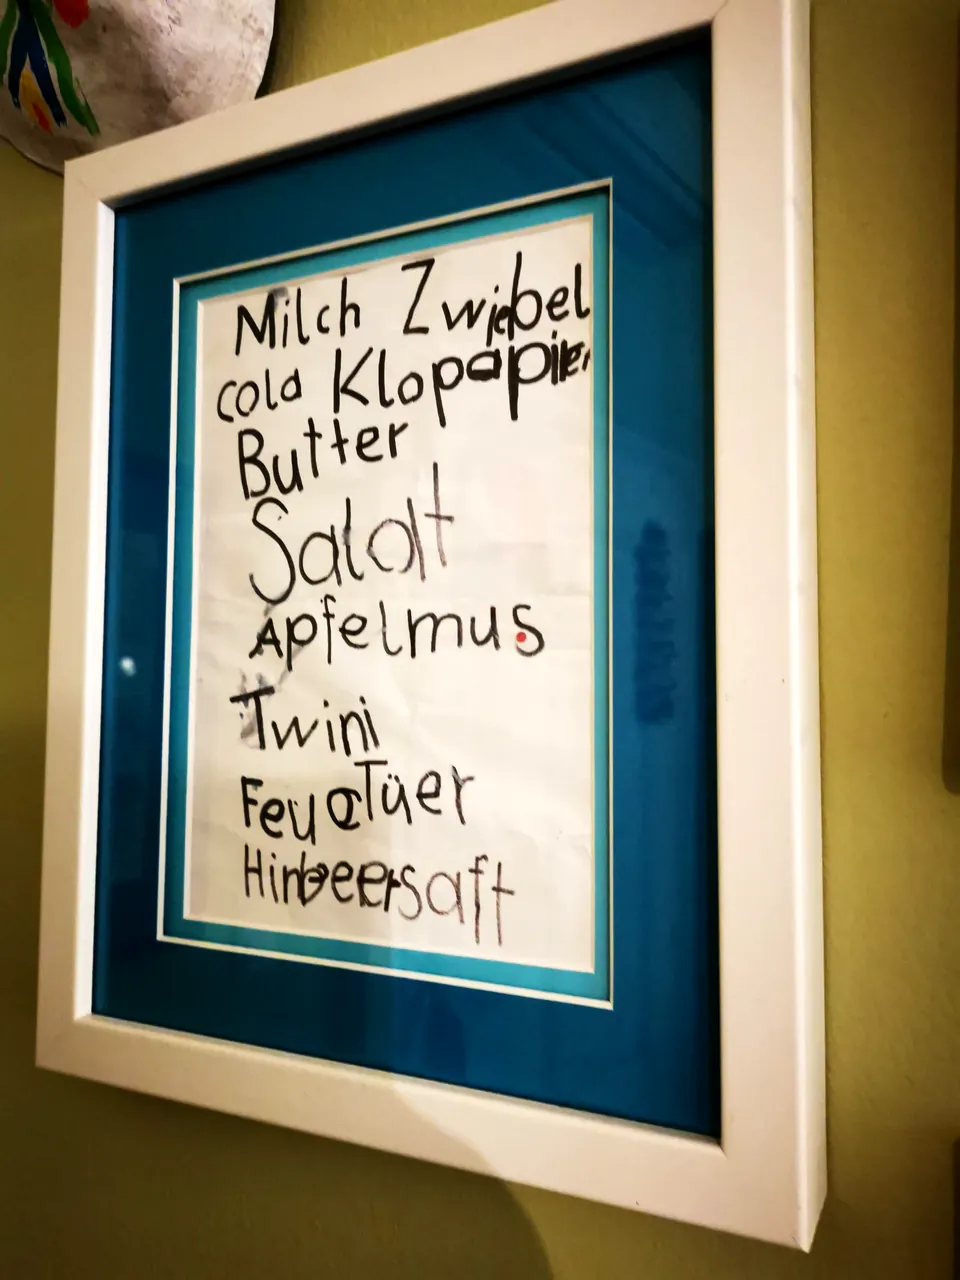 Milch Zwiebel
cola Klopapier
Butter
Salat
Apfelmus
Twini
FeuaTüer
Hinbeersaft